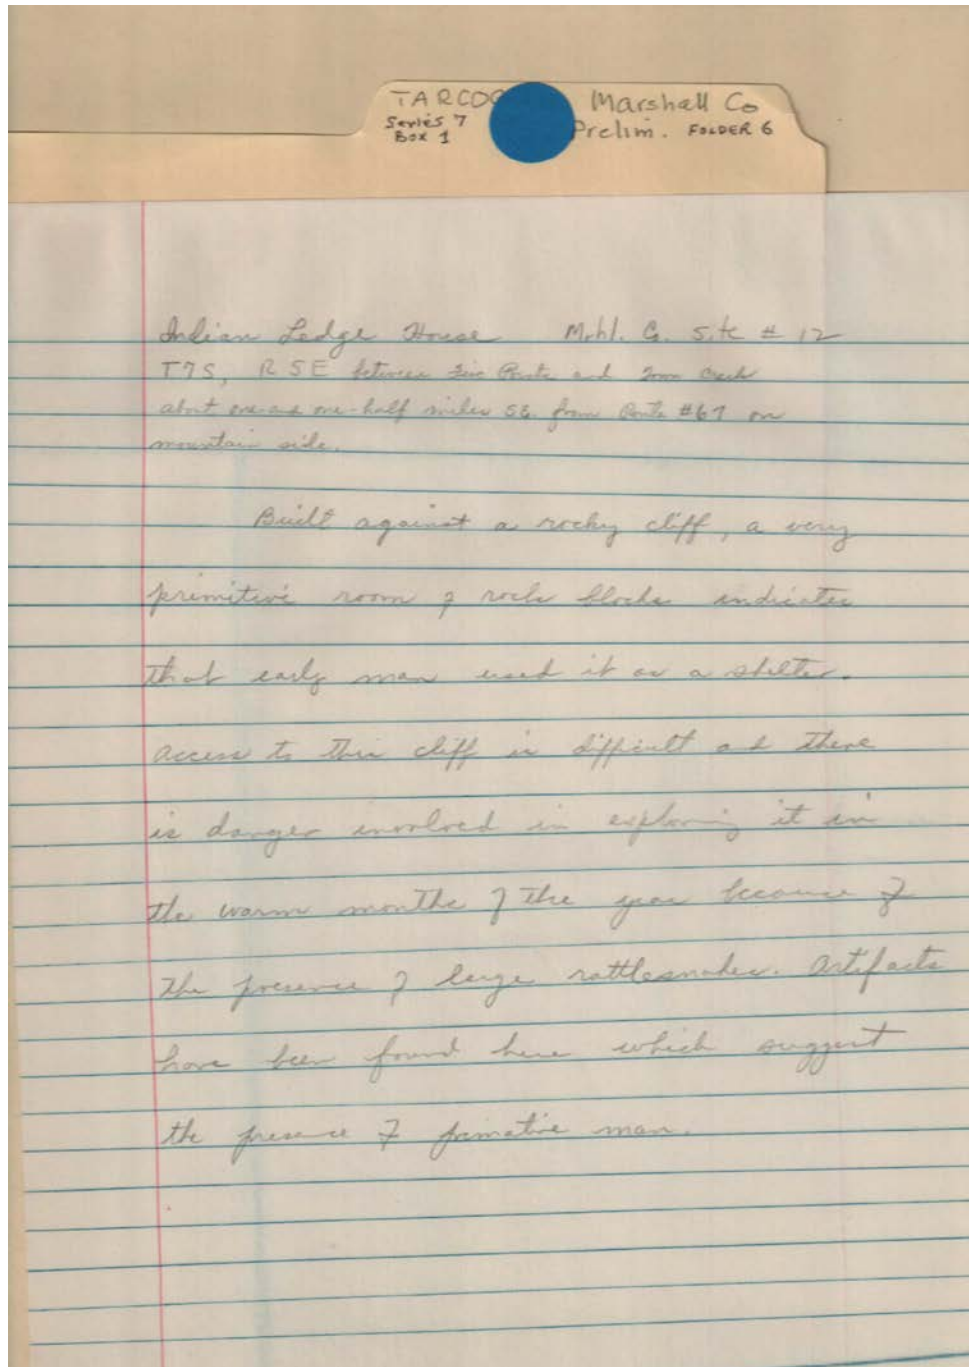 TARCOG
Series 7
Box 1
Marshall Co
Prelim. FOLDER 6
Indian Ledge House Mrhl. Co. Site # 12
T7S, R5E between and Creek
about one and one-half miles SE. from Route #67 on
mountain side.
Built against a rocky cliff, a very
primitive room of rock blocks indicates
that early man used it as a shelter.
Access to this cliff is difficult and there
is danger involved in exploring it in
the warm months of the year because of
the presence of large rattlesnakes. Artifacts
have been found here which suggest
the presence of primative man.